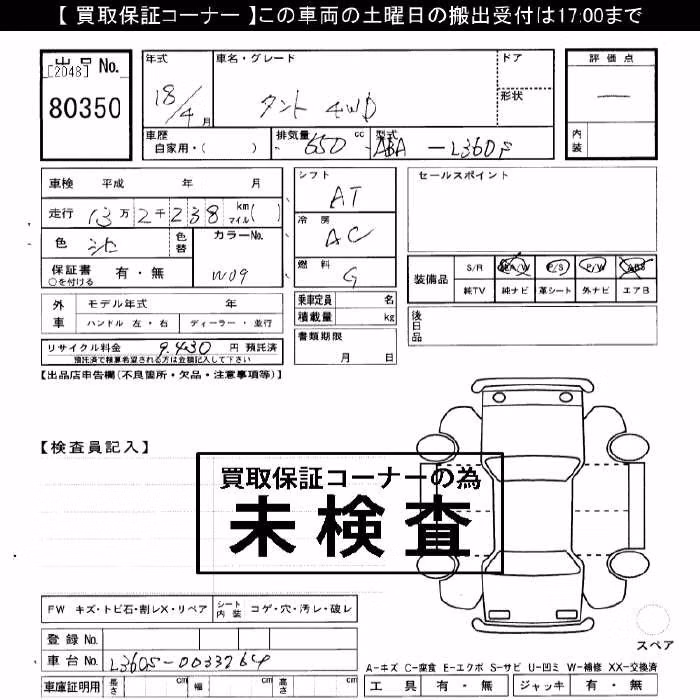 【 買取保証コーナー 】この車両の土曜日の搬出受付は17:00まで
出品 No.
[2048]
80350
年式
18/4月
車名・グレード
タント 4WD
ドア
形状
評価点
一
内装
車歴
自家用・( )
排気量
650 cc
型式
ABA -L360S
車検 平成 年 月
走行 13万2千238 km マイル( )
色 シロ
色替
カラーNo.
W09
保証書 有・無
○を付ける
シフト
AT
冷房
AC
燃料
G
乗車定員 名
積載量 kg
セールスポイント
装備品
S/R A/W P/S P/W ABS
純TV 純ナビ 革シート 外ナビ エアB
外車
モデル年式 年
ハンドル 左・右 ディーラー・並行
書類期限
月 日
後日品
リサイクル料金 9,430 円 預託済
預託済で検算希望される方は金額記入して下さい
【出品店申告欄(不良箇所・欠品・注意事項等)】
【検査員記入】
買取保証コーナーの為
未検査
FW キズ・トビ石・割レX・リペア
シート内装 コゲ・穴・汚レ・破レ
登録No.
車台No. L360S-0033264
車庫証明用 長さ cm 幅 cm 高さ cm
スペア
A-キズ C-腐食 E-エクボ S-サビ U-凹ミ W-補修 XX-交換済
工具 有・無 ジャッキ 有・無